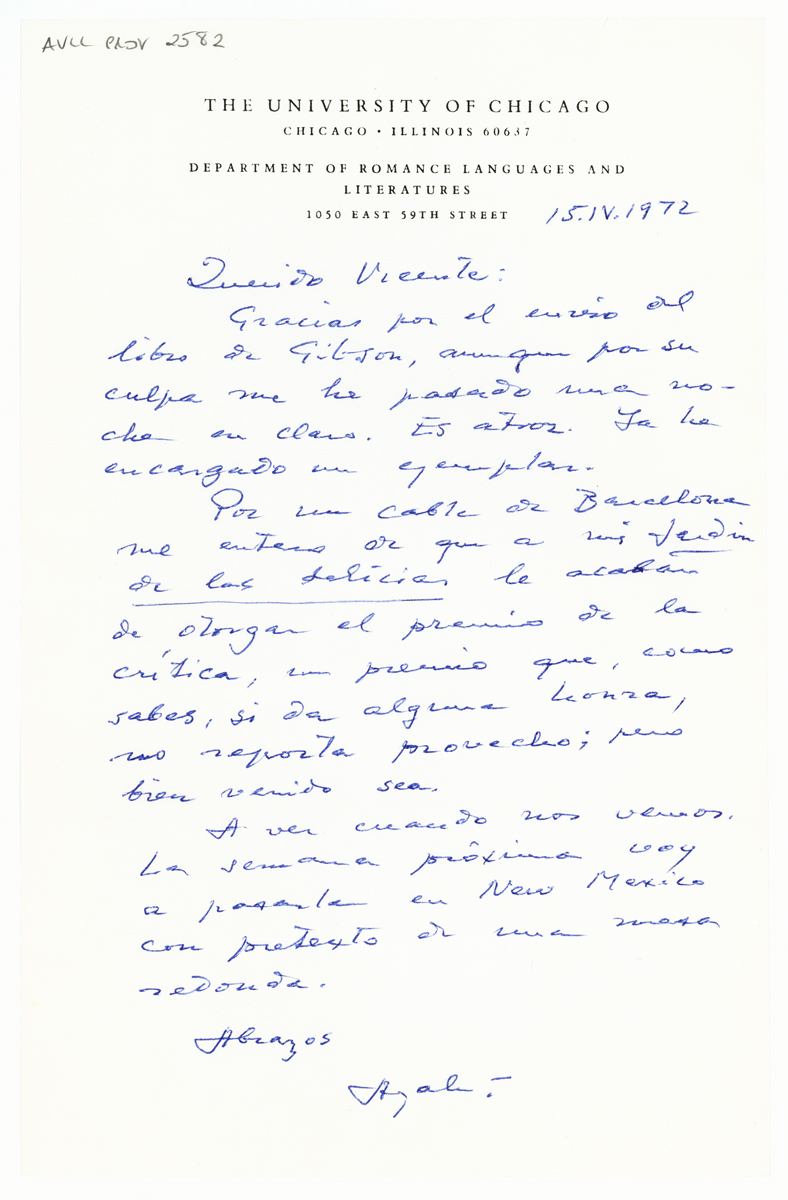 AVLL PROV 2582
THE UNIVERSITY OF CHICAGO
CHICAGO • ILLINOIS 60637
DEPARTMENT OF ROMANCE LANGUAGES AND
LITERATURES
1050 EAST 59TH STREET 15.IV.1972
Querido Vicente:
Gracias por el envío del
libro de Gibson, aunque por su
culpa me he pasado una no-
che en claro. Es atroz. Ya he
encargado un ejemplar.
Por un cable de Barcelona
me entero de que a mi Jardín
de las delicias le acaban
de otorgar el premio de la
crítica, un premio que, como
sabes, si da alguna honra,
no reporta provecho; pero
bien venido sea.
A ver cuando nos vemos.
La semana próxima voy
a pasarla en New Mexico
con pretexto de una mesa
redonda.
Abrazos
Ayala